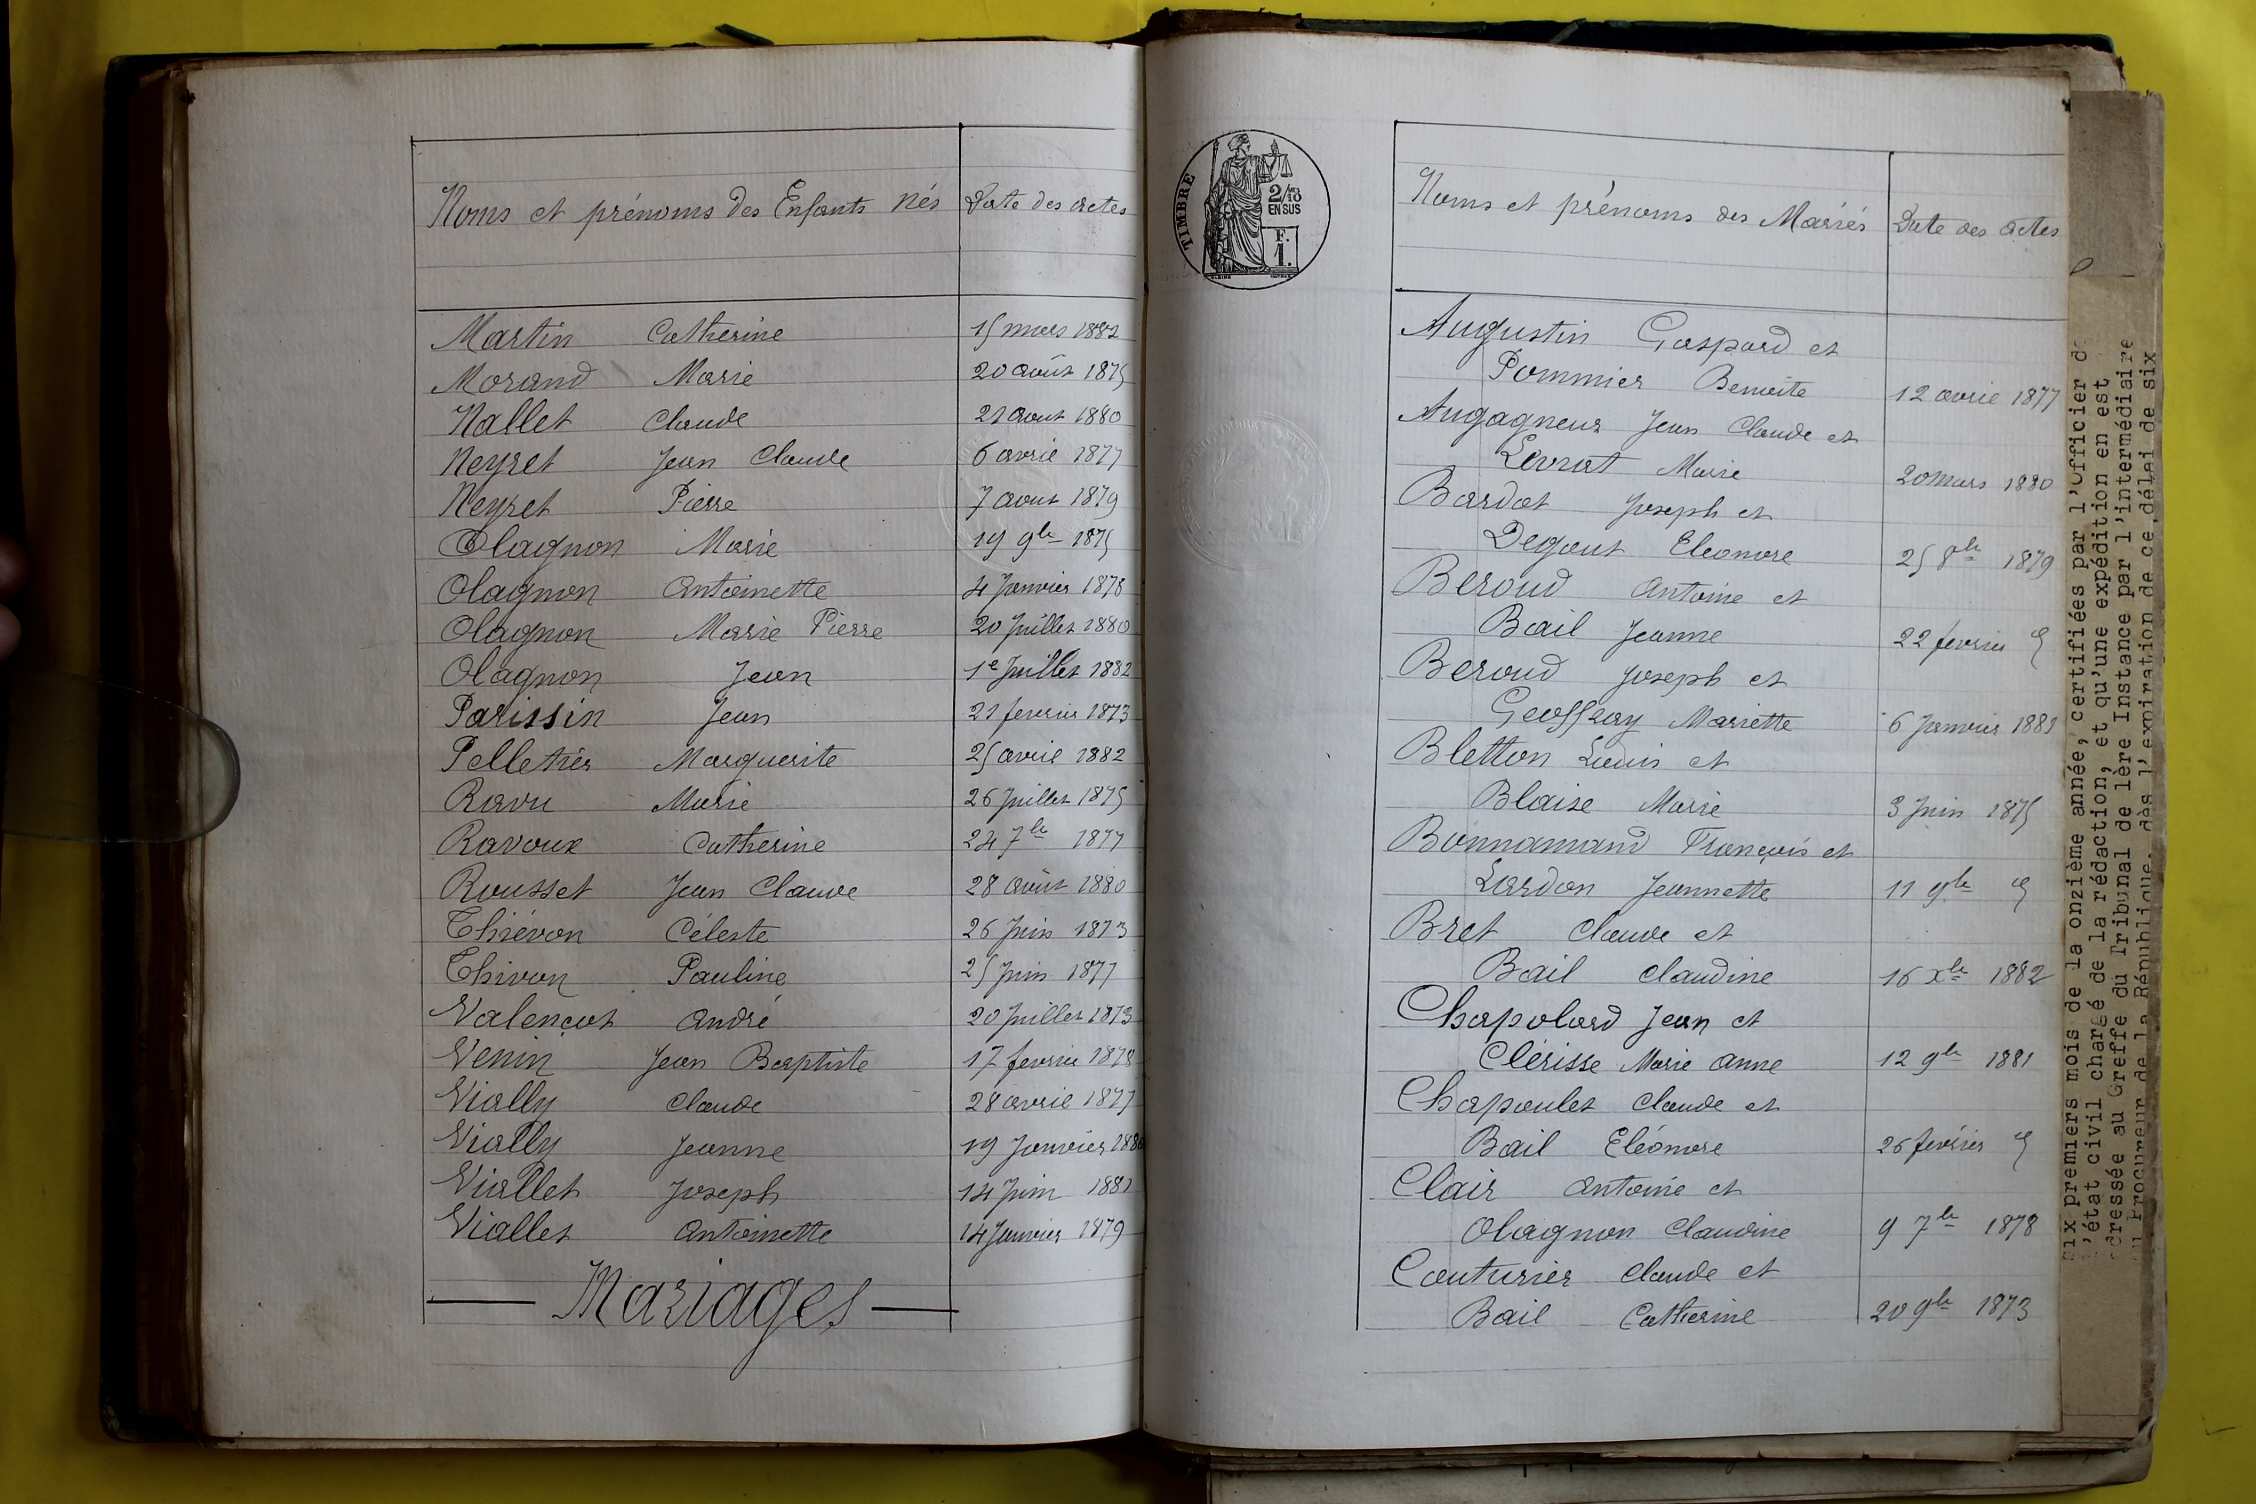 Noms et prénoms des Enfants nés Date des actes
Martin Catherine 15 mars 1882
Morand Marie 20 août 1875
Nallet Claude 21 aout 1880
Neyret Jean Claude 6 avril 1877
Neyret Pierre 7 aout 1879
Olagnon Marie 19 9bre 1875
Olagnon Antoinette 4 Janvier 1878
Olagnon Marie Pierre 20 Juillet 1880
Olagnon Jean 1e Juillet 1882
Parissin Jean 21 fevrier 1873
Pelletier Marguerite 25 avril 1882
Ravu Marie 26 Juillet 1875
Ravoux Catherine 24 7bre 1877
Rousset Jean Claude 28 août 1880
Thiévon Céleste 26 Juin 1873
Thivon Pauline 25 Juin 1877
Valençot André 20 Juillet 1873
Venin Jean Baptiste 17 fevrier 1878
Vially Claude 28 avril 1877
Vially Jeanne 19 Janvier 1880
Viallet Joseph 14 Juin 1881
Viallet Antoinette 14 Janvier 1879
Mariages
TIMBRE
2/10
EN SUS
F.
1.
Noms et prénoms des Mariés Date des actes
Augustin Gaspard et
Pommier Benoite 12 avril 1877
Augagneur Jean Claude et
Levrat Marie 20 mars 1880
Bardot Joseph et
Degout Eleonore 25 8bre 1879
Beroud Antoine et
Bail Jeanne 22 fevrier d
Beroud Joseph et
Geoffray Mariette 6 Janvier 1881
Bletton et
Blaise Marie 3 Juin 1875
Bonnamand François et
Lardon Jeannette 11 9bre d
Bret Claude et
Bail Claudine 16 Xbre 1882
Chapolard Jean et
Clérisse Marie Anne 12 9bre 1881
Chapoulet Claude et
Bail Eléonore 26 février d
Clair Antoine et
Olagnon Claudine 9 7bre 1878
Couturier Claude et
Bail Catherine 20 9bre 1873
six premiers mois de la onzième année, certifiées par l'Officier d
l'état civil chargé de la rédaction, et qu'une expédition en est
adressée au Greffe du Tribunal de 1ère Instance par l'intermédiaire
du Procureur de la République, dès l'expiration de ce délai de six